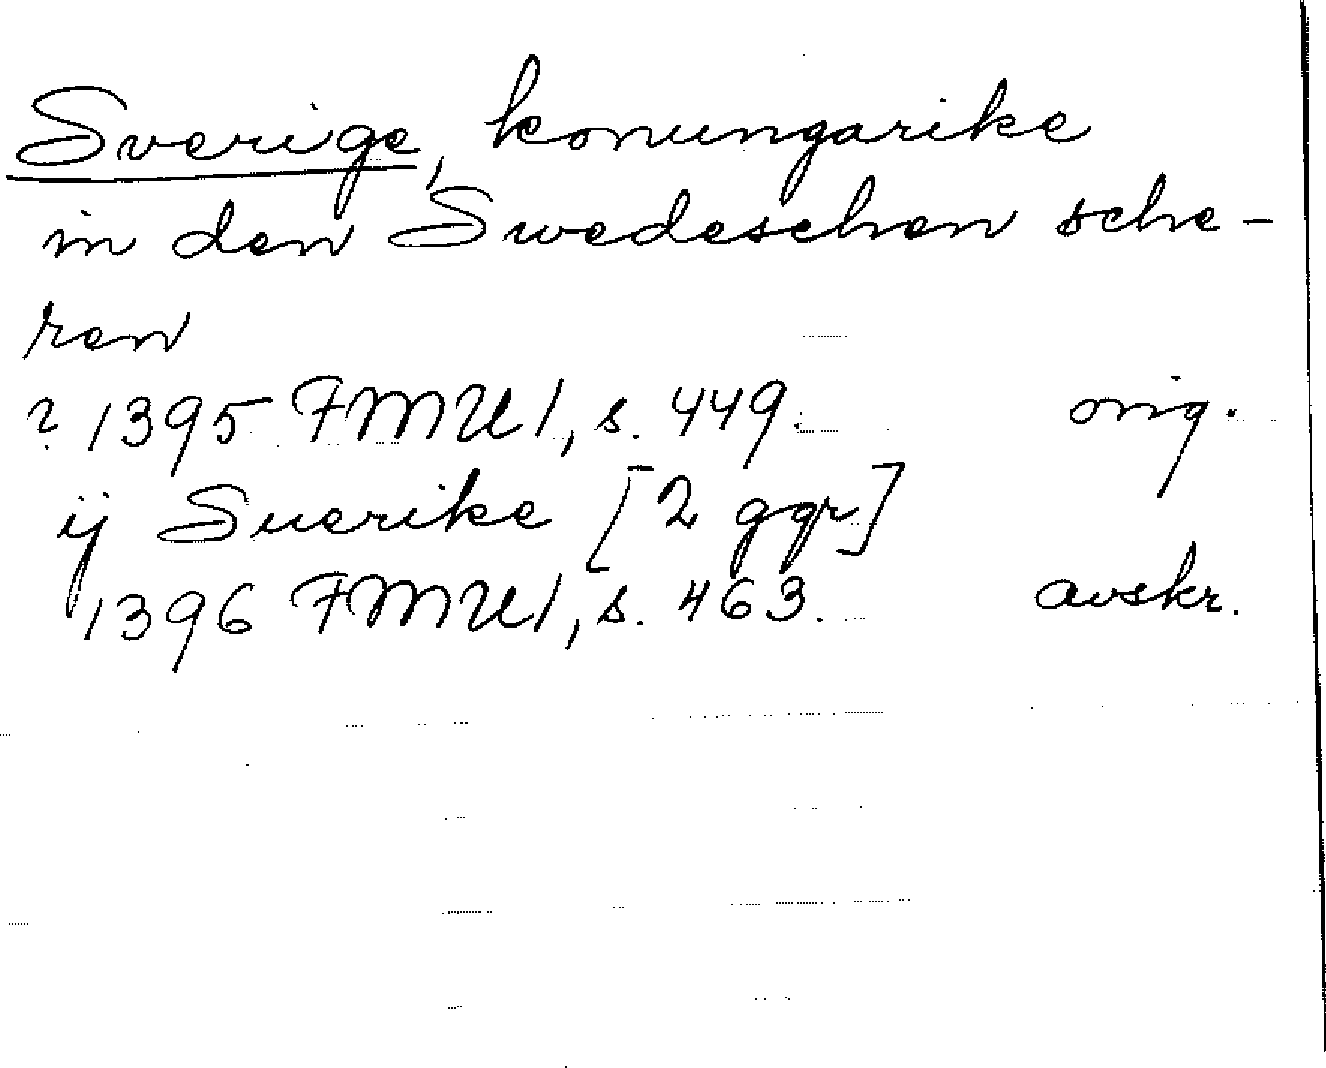 Sverige, konungarike
in den Swedeschen sche-
ren
? 1395 FMU 1, s. 449. orig.
ij Suerike [2 ggr]
1396 FMU 1, s. 463. avskr.